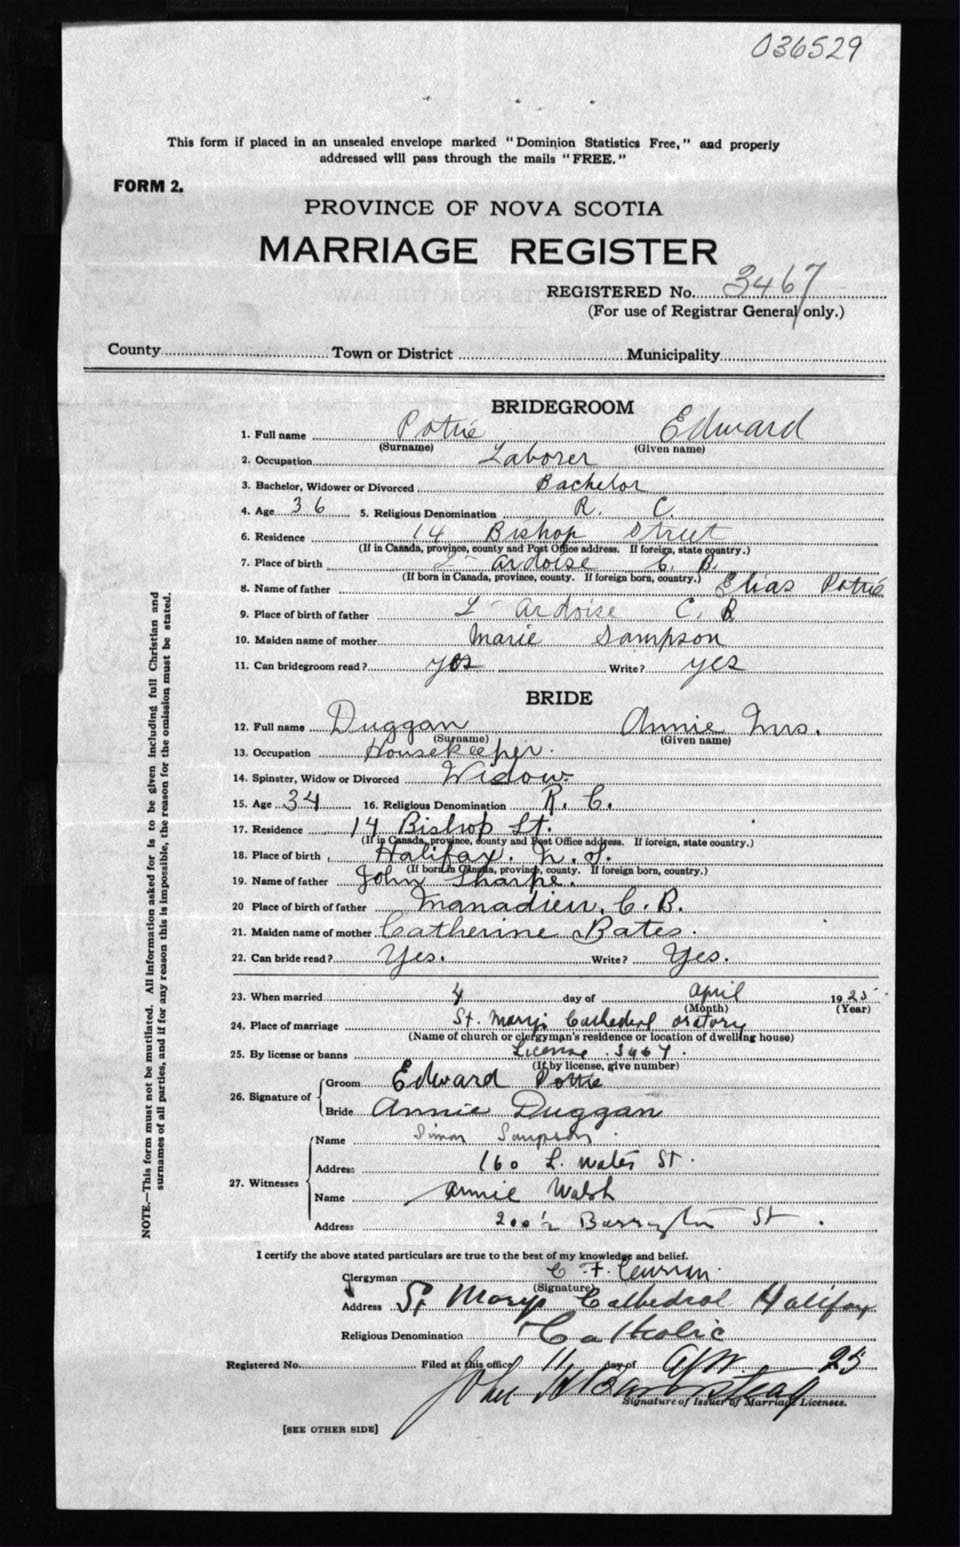 036529
This form if placed in an unsealed envelope marked "Dominion Statistics Free," and properly
addressed will pass through the mails "FREE."
FORM 2.
PROVINCE OF NOVA SCOTIA
MARRIAGE REGISTER
REGISTERED No. 3467
(For use of Registrar General only.)
County Town or District Municipality
BRIDEGROOM
1. Full name Pottie Edward
(Surname) (Given name)
2. Occupation Laborer
3. Bachelor, Widower or Divorced Bachelor
4. Age 36 5. Religious Denomination R. C.
6. Residence 14 Bishop Street
(If in Canada, province, county and Post Office address. If foreign, state country.)
7. Place of birth L'Ardoise C. B.
(If born in Canada, province, county. If foreign born, country.)
8. Name of father Elias Pottie
9. Place of birth of father L'Ardoise C. B
10. Maiden name of mother Marie Sampson
11. Can bridegroom read? yes Write? yes
BRIDE
12. Full name Duggan Annie Mrs.
(Surname) (Given name)
13. Occupation Housekeeper.
14. Spinster, Widow or Divorced Widow.
15. Age 34 16. Religious Denomination R. C.
17. Residence 14 Bishop St.
(If in Canada, province, county and Post Office address. If foreign, state country.)
18. Place of birth Halifax. N. S.
(If born in Canada, province, county. If foreign born, country.)
19. Name of father John Sharpe.
20 Place of birth of father Manadieu, C. B.
21. Maiden name of mother Catherine Bates.
22. Can bride read? Yes. Write? Yes.
23. When married 4 day of April 1925
(Month) (Year)
24. Place of marriage St. Mary's Cathedral oratory
(Name of church or clergyman's residence or location of dwelling house)
25. By license or banns License 3467.
(If by license, give number)
26. Signature of Groom Edward Pottie
Bride Annie Duggan
27. Witnesses Name Simon Sampson
Address 160 L. Water St.
Name Annie Walsh
Address 200½ Barrington St.
I certify the above stated particulars are true to the best of my knowledge and belief.
Clergyman C. F. Curran.
(Signature)
Address St Marys Cathedral Halifax
Religious Denomination Catholic
Registered No. Filed at this office 11 day of 25
John H Barnstead
Signature of Issuer of Marriage Licenses.
[SEE OTHER SIDE]
NOTE.—This form must not be mutilated. All information asked for is to be given including full Christian and
surnames of all parties, and if for any reason this is impossible, the reason for the omission must be stated.